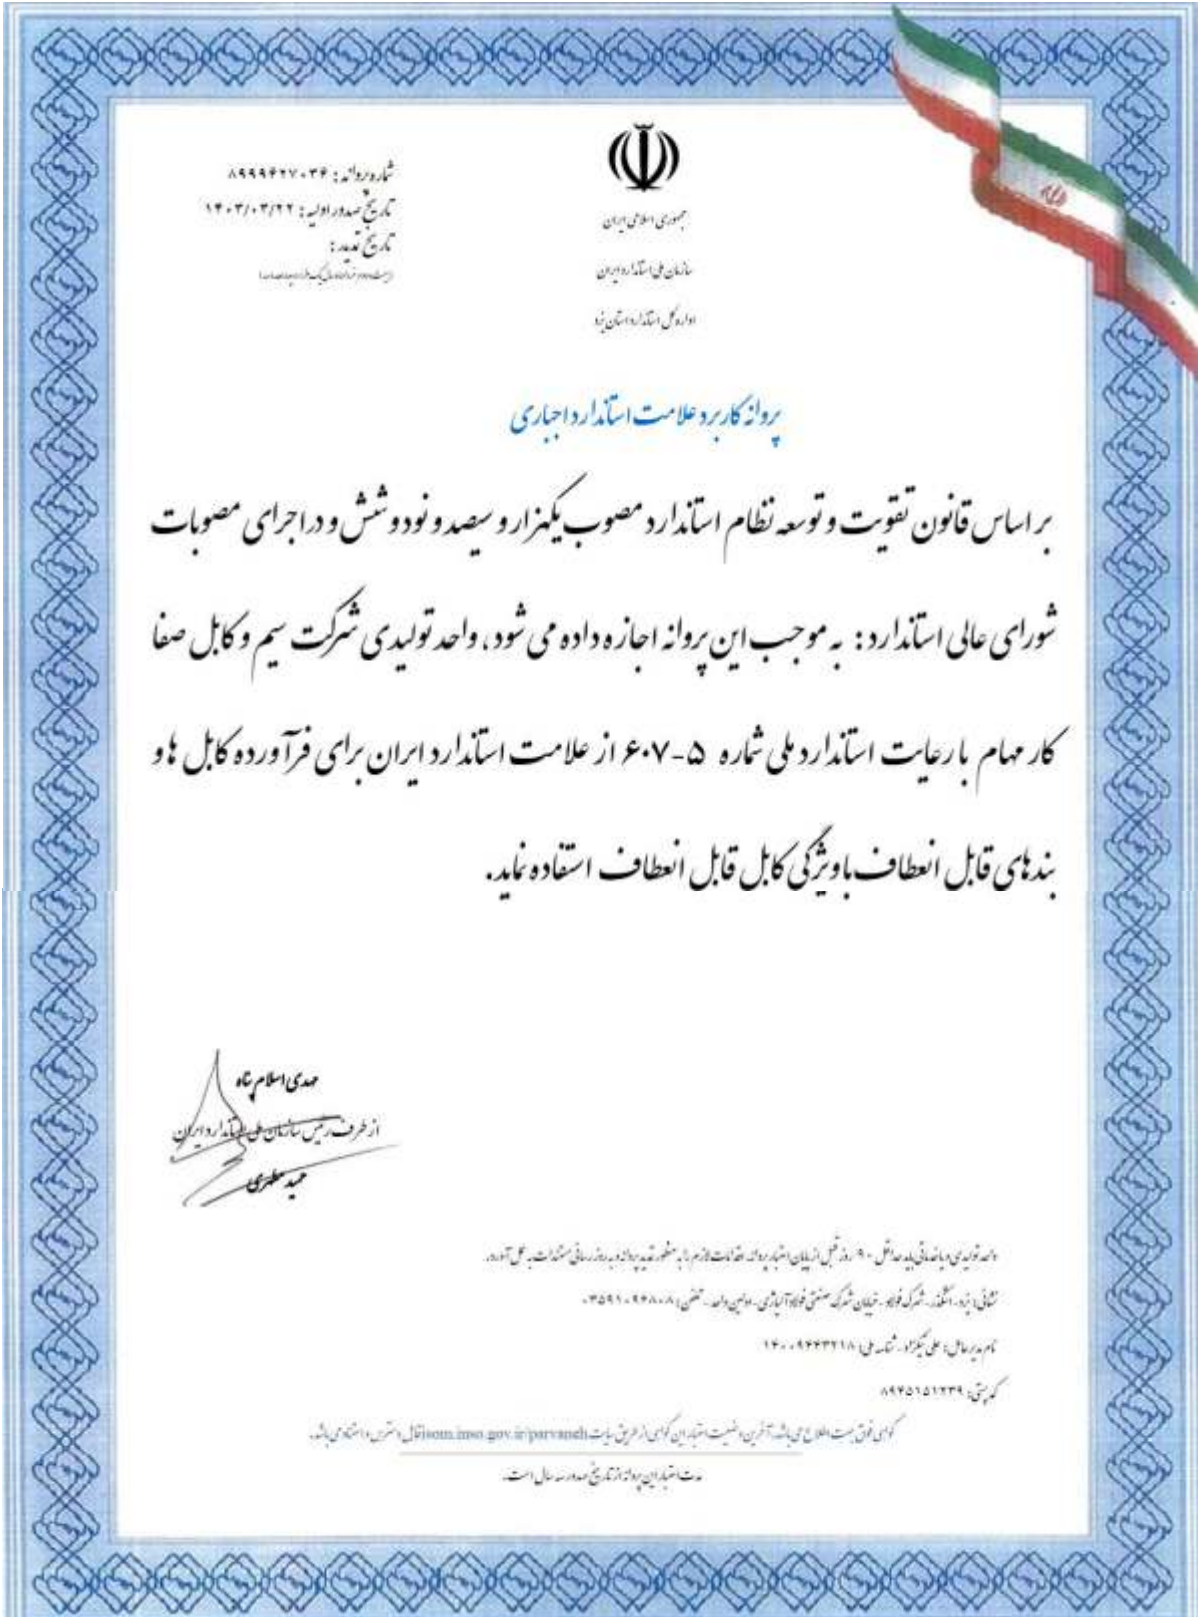 جمهوری اسلامی ایران
سازمان ملی استاندارد ایران
اداره کل استاندارد استان یزد
شماره پروانه : ۸۹۹۹۶۲۷۰۳۶
تاریخ صدور اولیه : ۱۴۰۳/۰۳/۲۲
تاریخ تمدید :
پروانه کاربرد علامت استاندارد اجباری
بر اساس قانون تقویت و توسعه نظام استاندارد مصوب یکهزار و سیصد و نود و شش و در اجرای مصوبات
شورای عالی استاندارد : به موجب این پروانه اجازه داده می شود، واحد تولیدی شرکت سیم و کابل صفا
کار مهام با رعایت استاندارد ملی شماره ۵-۶۰۷ از علامت استاندارد ایران برای فرآورده کابل ها و
بندهای قابل انعطاف با ویژگی کابل قابل انعطاف استفاده نماید.
مهدی اسلام پناه
از طرف رئیس سازمان ملی استاندارد ایران
واحد تولیدی و یا خدماتی باید حداقل ۹۰ روز قبل از پایان اعتبار پروانه، اقدامات لازم را به منظور تمدید پروانه و به روز رسانی مستندات به عمل آورد.
نشانی: یزد - اشکذر - شهرک فولاد - خیابان شهرک صنعتی فولاد آلیاژی - اولین واحد - تلفن:
نام مدیر عامل: علی نیکزاد - شناسه ملی: ۱۴۰۰۹۴۴۳۲۱۸
کد پستی: ۸۹۴۵۱۵۱۲۳۹
گواهی فوق جهت اطلاع می باشد. آخرین وضعیت اعتبار این گواهی از طریق سایت isom.inso.gov.ir/parvaneh قابل دسترس و استناد می باشد.
مدت اعتبار این پروانه از تاریخ صدور سه سال است.